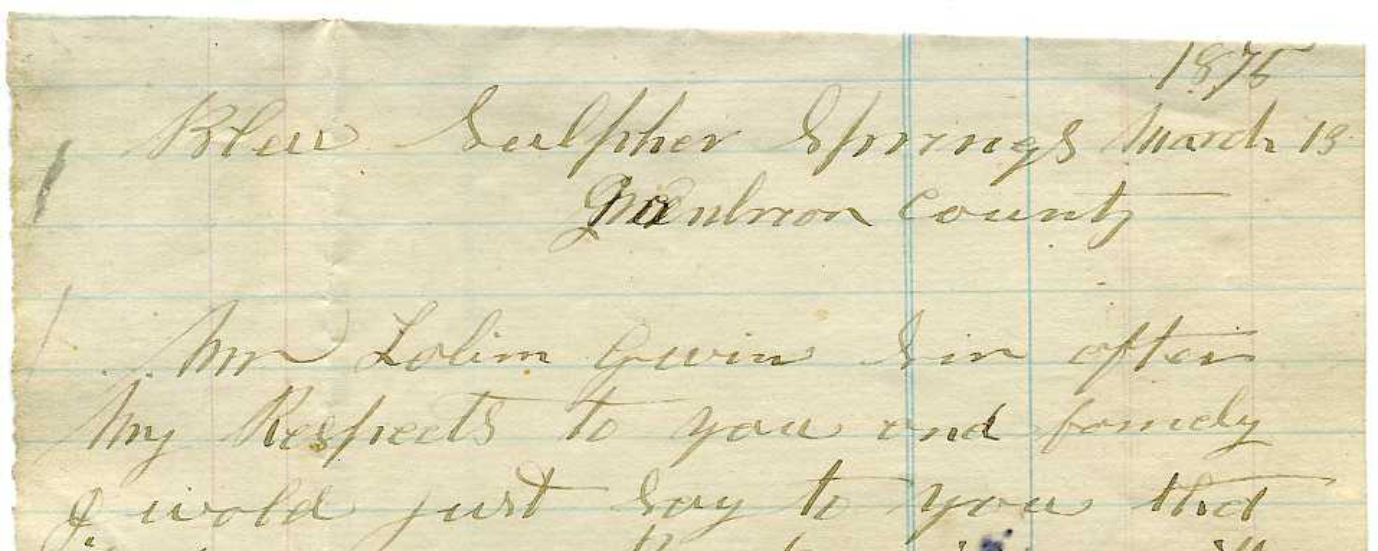 1875
Bleu Sulpher Springs March 13
county
Mr Lolim Gwin Sir after
My Respects to you and family
I wold just Say to you that